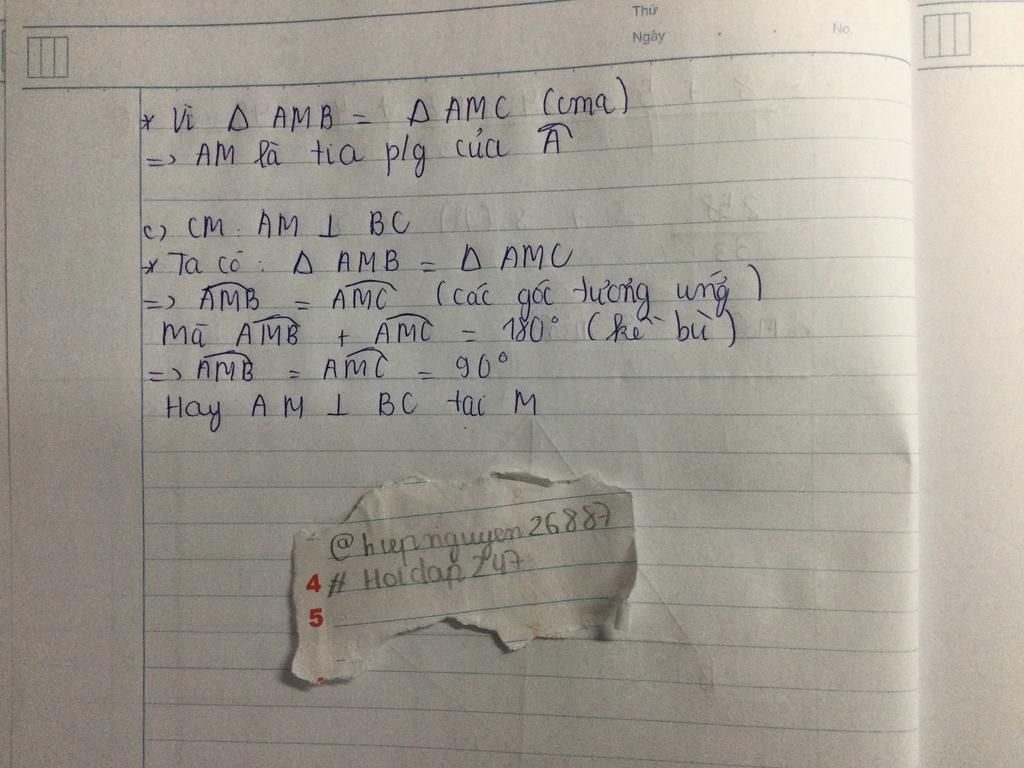 Thứ
Ngày
No.
* Vì Δ AMB = Δ AMC (cma)
=> AM là tia p/g của Â
c) CM: AM ⊥ BC
* Ta có: Δ AMB = Δ AMC
=> AMB = AMC (các góc tương ứng)
Mà AMB + AMC = 180° (kề bù)
=> AMB = AMC = 90°
Hay AM ⊥ BC tại M
@hiepnguyen26887
4 # Hoidap247
5